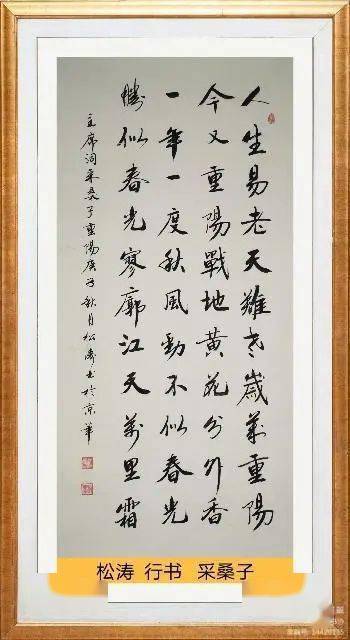 人生易老天難老歲歲重陽
今又重陽戰地黃花分外香
一年一度秋風勁不似春光
勝似春光寥廓江天萬里霜
主席詞采桑子重陽庚子秋月松濤書於京華
松涛 行书 采桑子